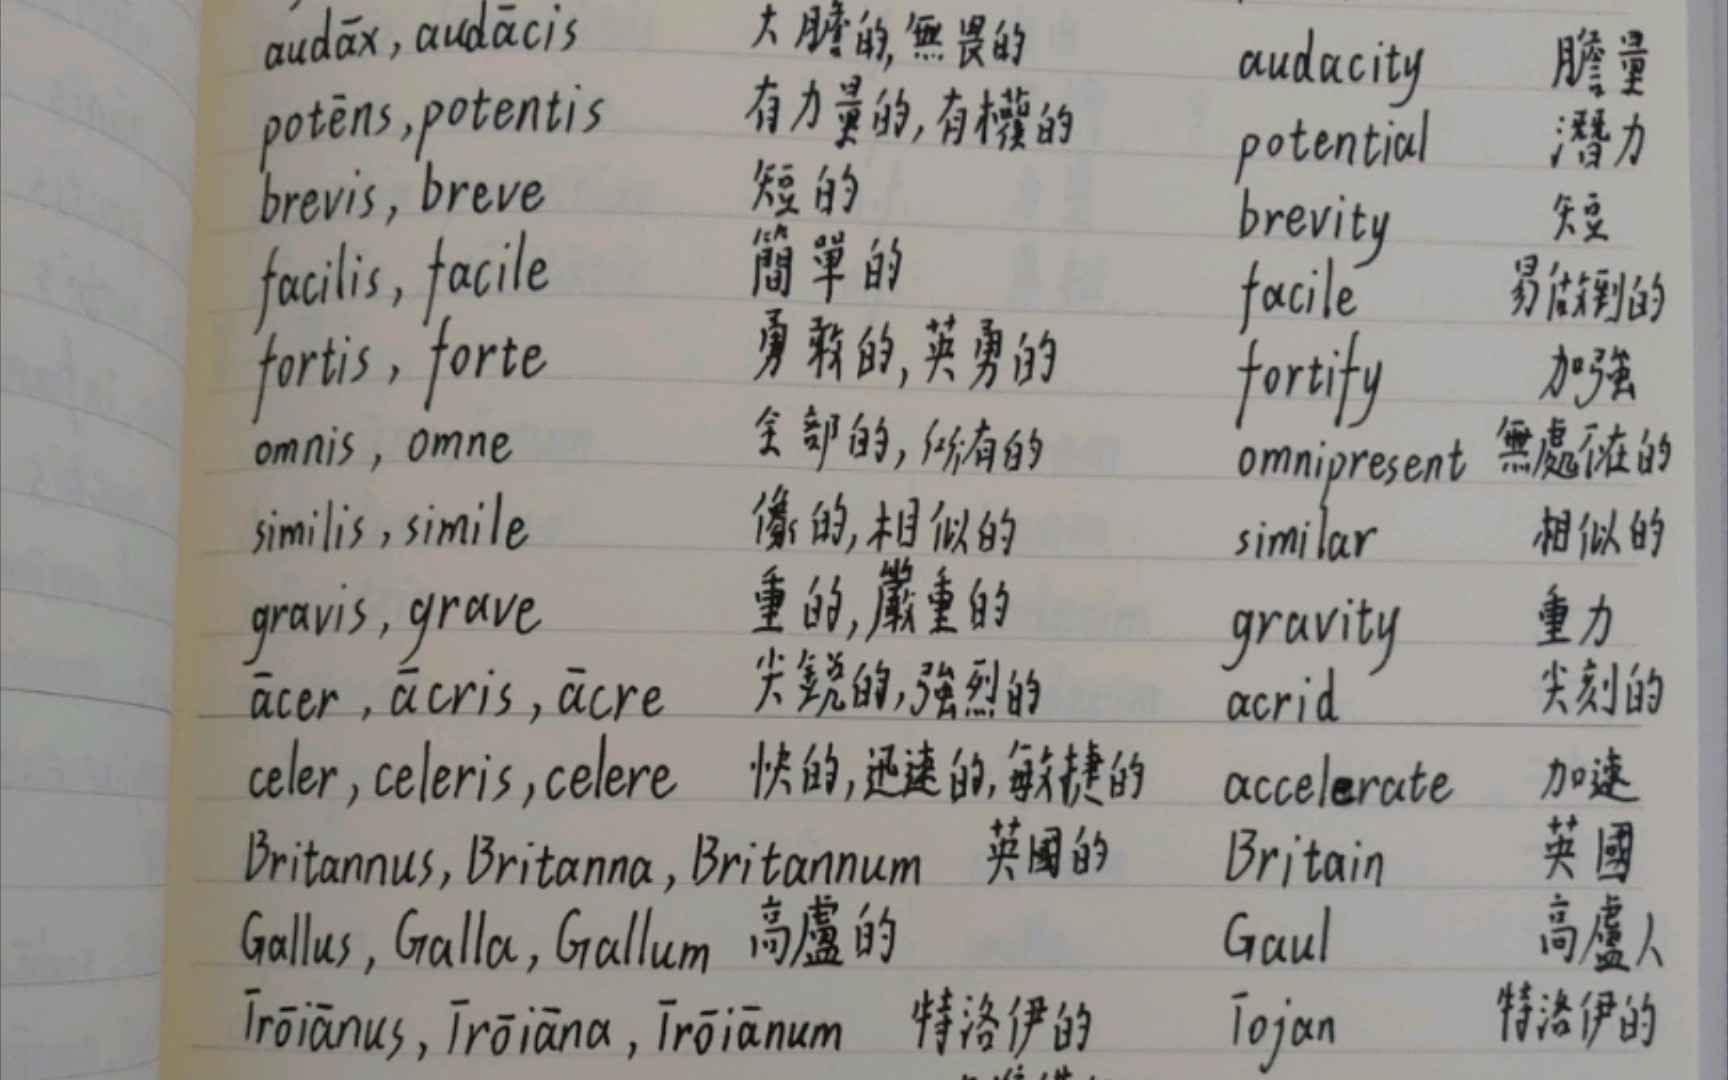 audāx, audācis 大膽的,無畏的 audacity 膽量
potēns, potentis 有力量的,有權的 potential 潛力
brevis, breve 短的 brevity 短
facilis, facile 簡單的 facile 易做到的
fortis, forte 勇敢的,英勇的 fortify 加強
omnis, omne 全部的,所有的 omnipresent 無處不在的
similis, simile 像的,相似的 similar 相似的
gravis, grave 重的,嚴重的 gravity 重力
ācer, ācris, ācre 尖銳的,強烈的 acrid 尖刻的
celer, celeris, celere 快的,迅速的,敏捷的 accelerate 加速
Britannus, Britanna, Britannum 英國的 Britain 英國
Gallus, Galla, Gallum 高盧的 Gaul 高盧人
Trōiānus, Trōiāna, Trōiānum 特洛伊的 Tojan 特洛伊的